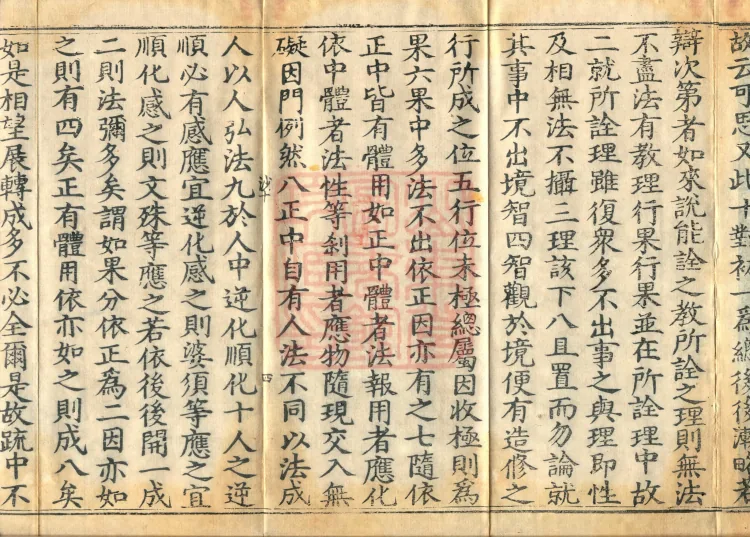 故云可思又此十對初一爲總後後漸略若
辯次第者如來說能詮之教所詮之理則無法
不盡法有教理行果行果並在所詮理中故
二就所詮理雖復衆多不出事之與理即性
及相無法不攝三理該下八且置而勿論就
其事中不出境智四智觀於境便有造修之
行所成之位五行位未極總屬因收極則爲
果六果中多法不出依正因亦有之七隨依
正中皆有體用如正中體者法報用者應化
依中體者法性等剎用者應物隨現交入無
礙因門例然八正中自有人法不同以法成
四
人以人弘法九於人中逆化順化十人之逆
順必有感應宜逆化感之則婆須等應之宜
順化感之則文殊等應之若依後後開一成
二則法彌多矣謂如果分依正爲二因亦如
之則有四矣正有體用依亦如之則成八矣
如是相望展轉成多不必全爾是故疏中不